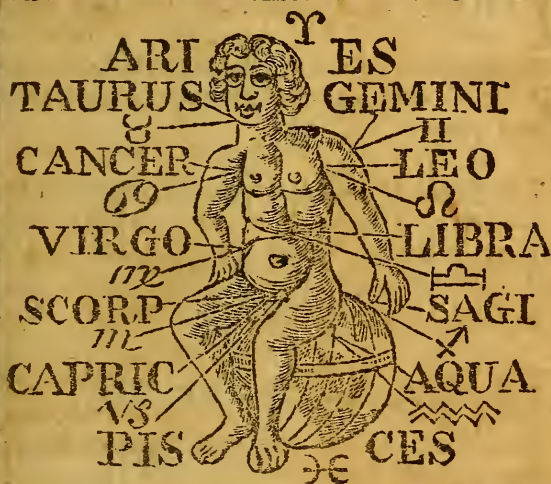 ARI ♈ ES
TAURUS GEMINI
♉ ♊
CANCER LEO
♋ ♌
VIRGO LIBRA
♍ ♎
SCORP SAGI
♏ ♐
CAPRIC AQUA
♑ ♒
PIS ♓ CES